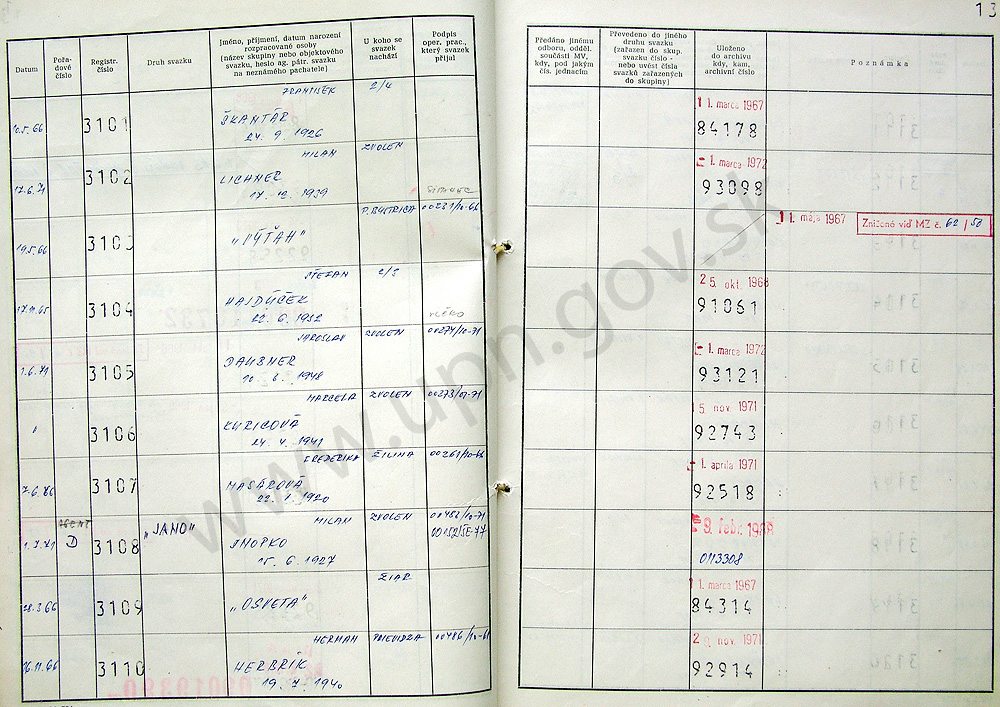 13
Datum
Pořa-
dové
číslo
Registr.
číslo
Druh svazku
Jméno, příjmení, datum narození
rozpracované osoby
(název skupiny nebo objektového
svazku, heslo ag. pátr. svazku
na neznámého pachatele)
U koho se
svazek
nachází
Podpis
oper. prac.,
který svazek
přijal
Předáno jinému
odboru, odděl.
součásti MV,
kdy, pod jakým
čís. jednacím
Převedeno do jiného
druhu svazku
(zařazen do skup.
svazku číslo -
nebo uvést čísla
svazků zařazených
do skupiny)
Uloženo
do archivu
kdy, kam,
archivní číslo
Poznámka
FRANTIŠEK 2/4
10.5.66 3101 ŠKANTÁR
24. 9. 1926
1. marca 1967
84178
MILAN ZVOLEN
17.6.71 3102 LICHNER
17. 12. 1939
1. marca 1972
93098
P. BYSTRICA 00231/10-66
19.5.66 3103 „PÚŤAH"
1. mája 1967 Zničené viď MZ č. 62/50
ŠTEFAN 2/3
17.11.65 3104 HAJDÚČEK
22. 6. 1932
25. okt. 1968
91061
JAROSLAV ZVOLEN 00274/10-71
1.6.71 3105 DAUBNER
10. 6. 1948
1. marca 1972
93121
MARCELA ZVOLEN 00273/10-71
" 3106 KURICOVÁ
24. 4. 1941
5. nov. 1971
92743
FREDERIKA ŽILINA 00261/10-66
7.6.66 3107 MASÁROVÁ
22. 1. 1920
1. apríla 1971
92518
AGENT „JANO" MILAN ZVOLEN 00482/10-71
1.7.71 D 3108 JMOPKO
15. 6. 1927
00152/ŠE-77
9. febr. 1988
0113308
ŽIAR
28.3.66 3109 „OSVETA"
1. marca 1967
84314
HERMAN PRIEVIDZA 00486/10-66
26.11.66 3110 HERBRÍK
19. 7. 1940
nov. 1971
92914
www.upn.gov.sk